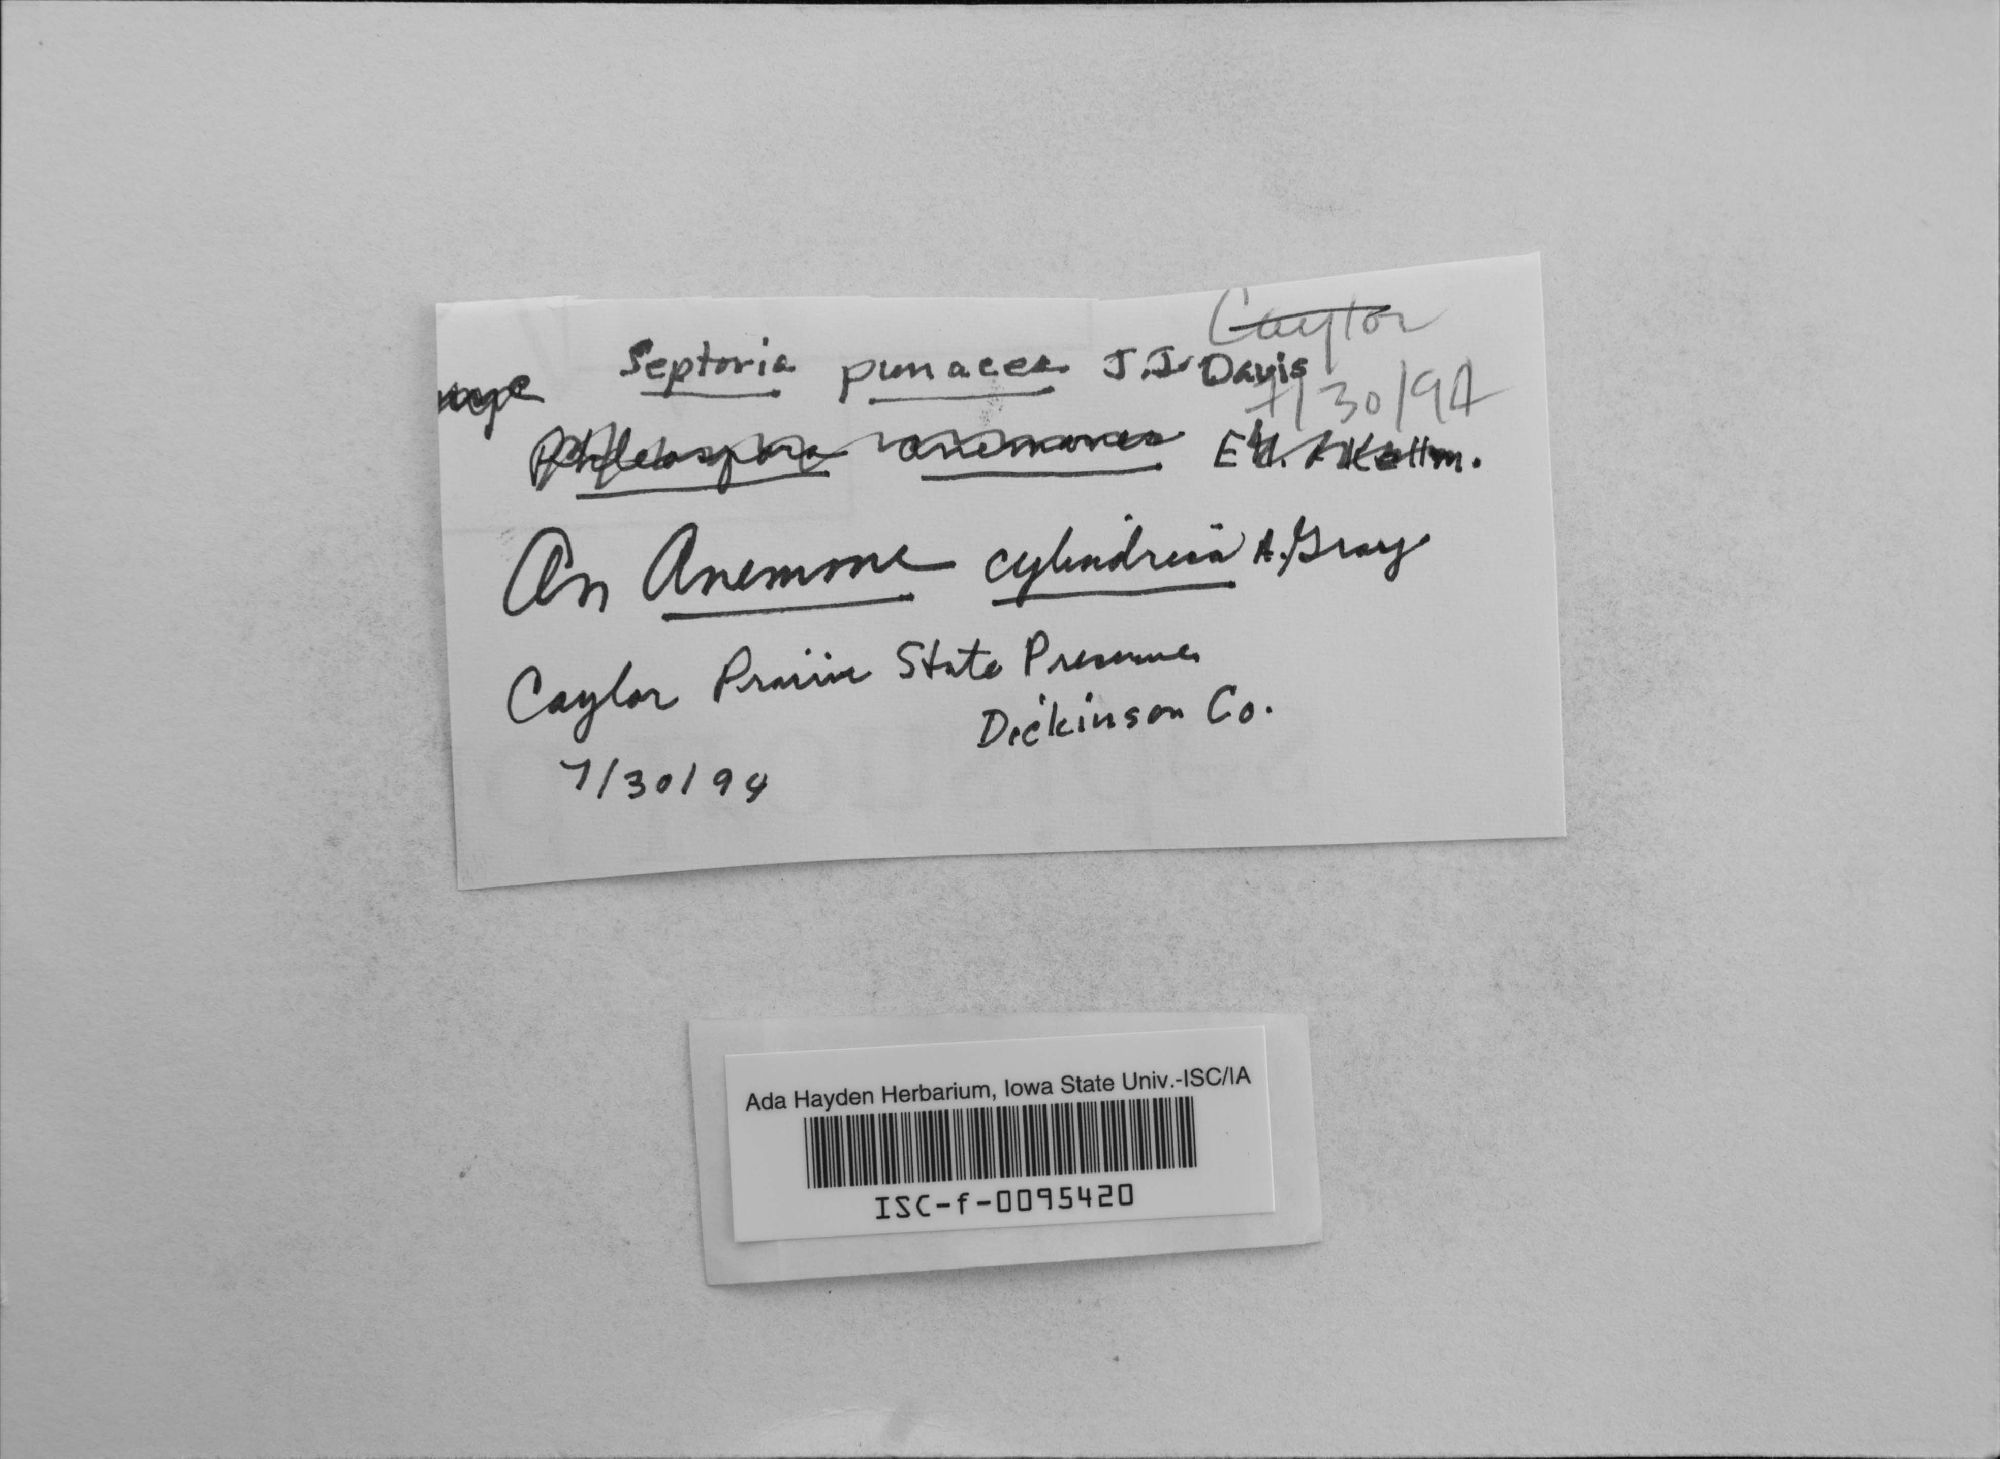 Caylor
Septoria punacea J.J. Davis
7/30/94
Phleospora anemones E. & Kellm.
On Anemone cylindrica A. Gray
Caylor Prairie State Preserve
Dickinson Co.
7/30/94
Ada Hayden Herbarium, Iowa State Univ.-ISC/IA
ISC-f-0095420